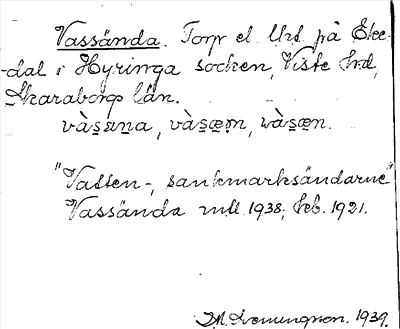 Vassända. Torp el. lht på Eke-
-dal i Hyringa socken, Viste hd,
Skaraborgs län.
vàsæna, vàsæn, wàsæn.
"Vatten-, sankmarksändarne"
Vassända mtl 1938; feb. 1921.
1939.